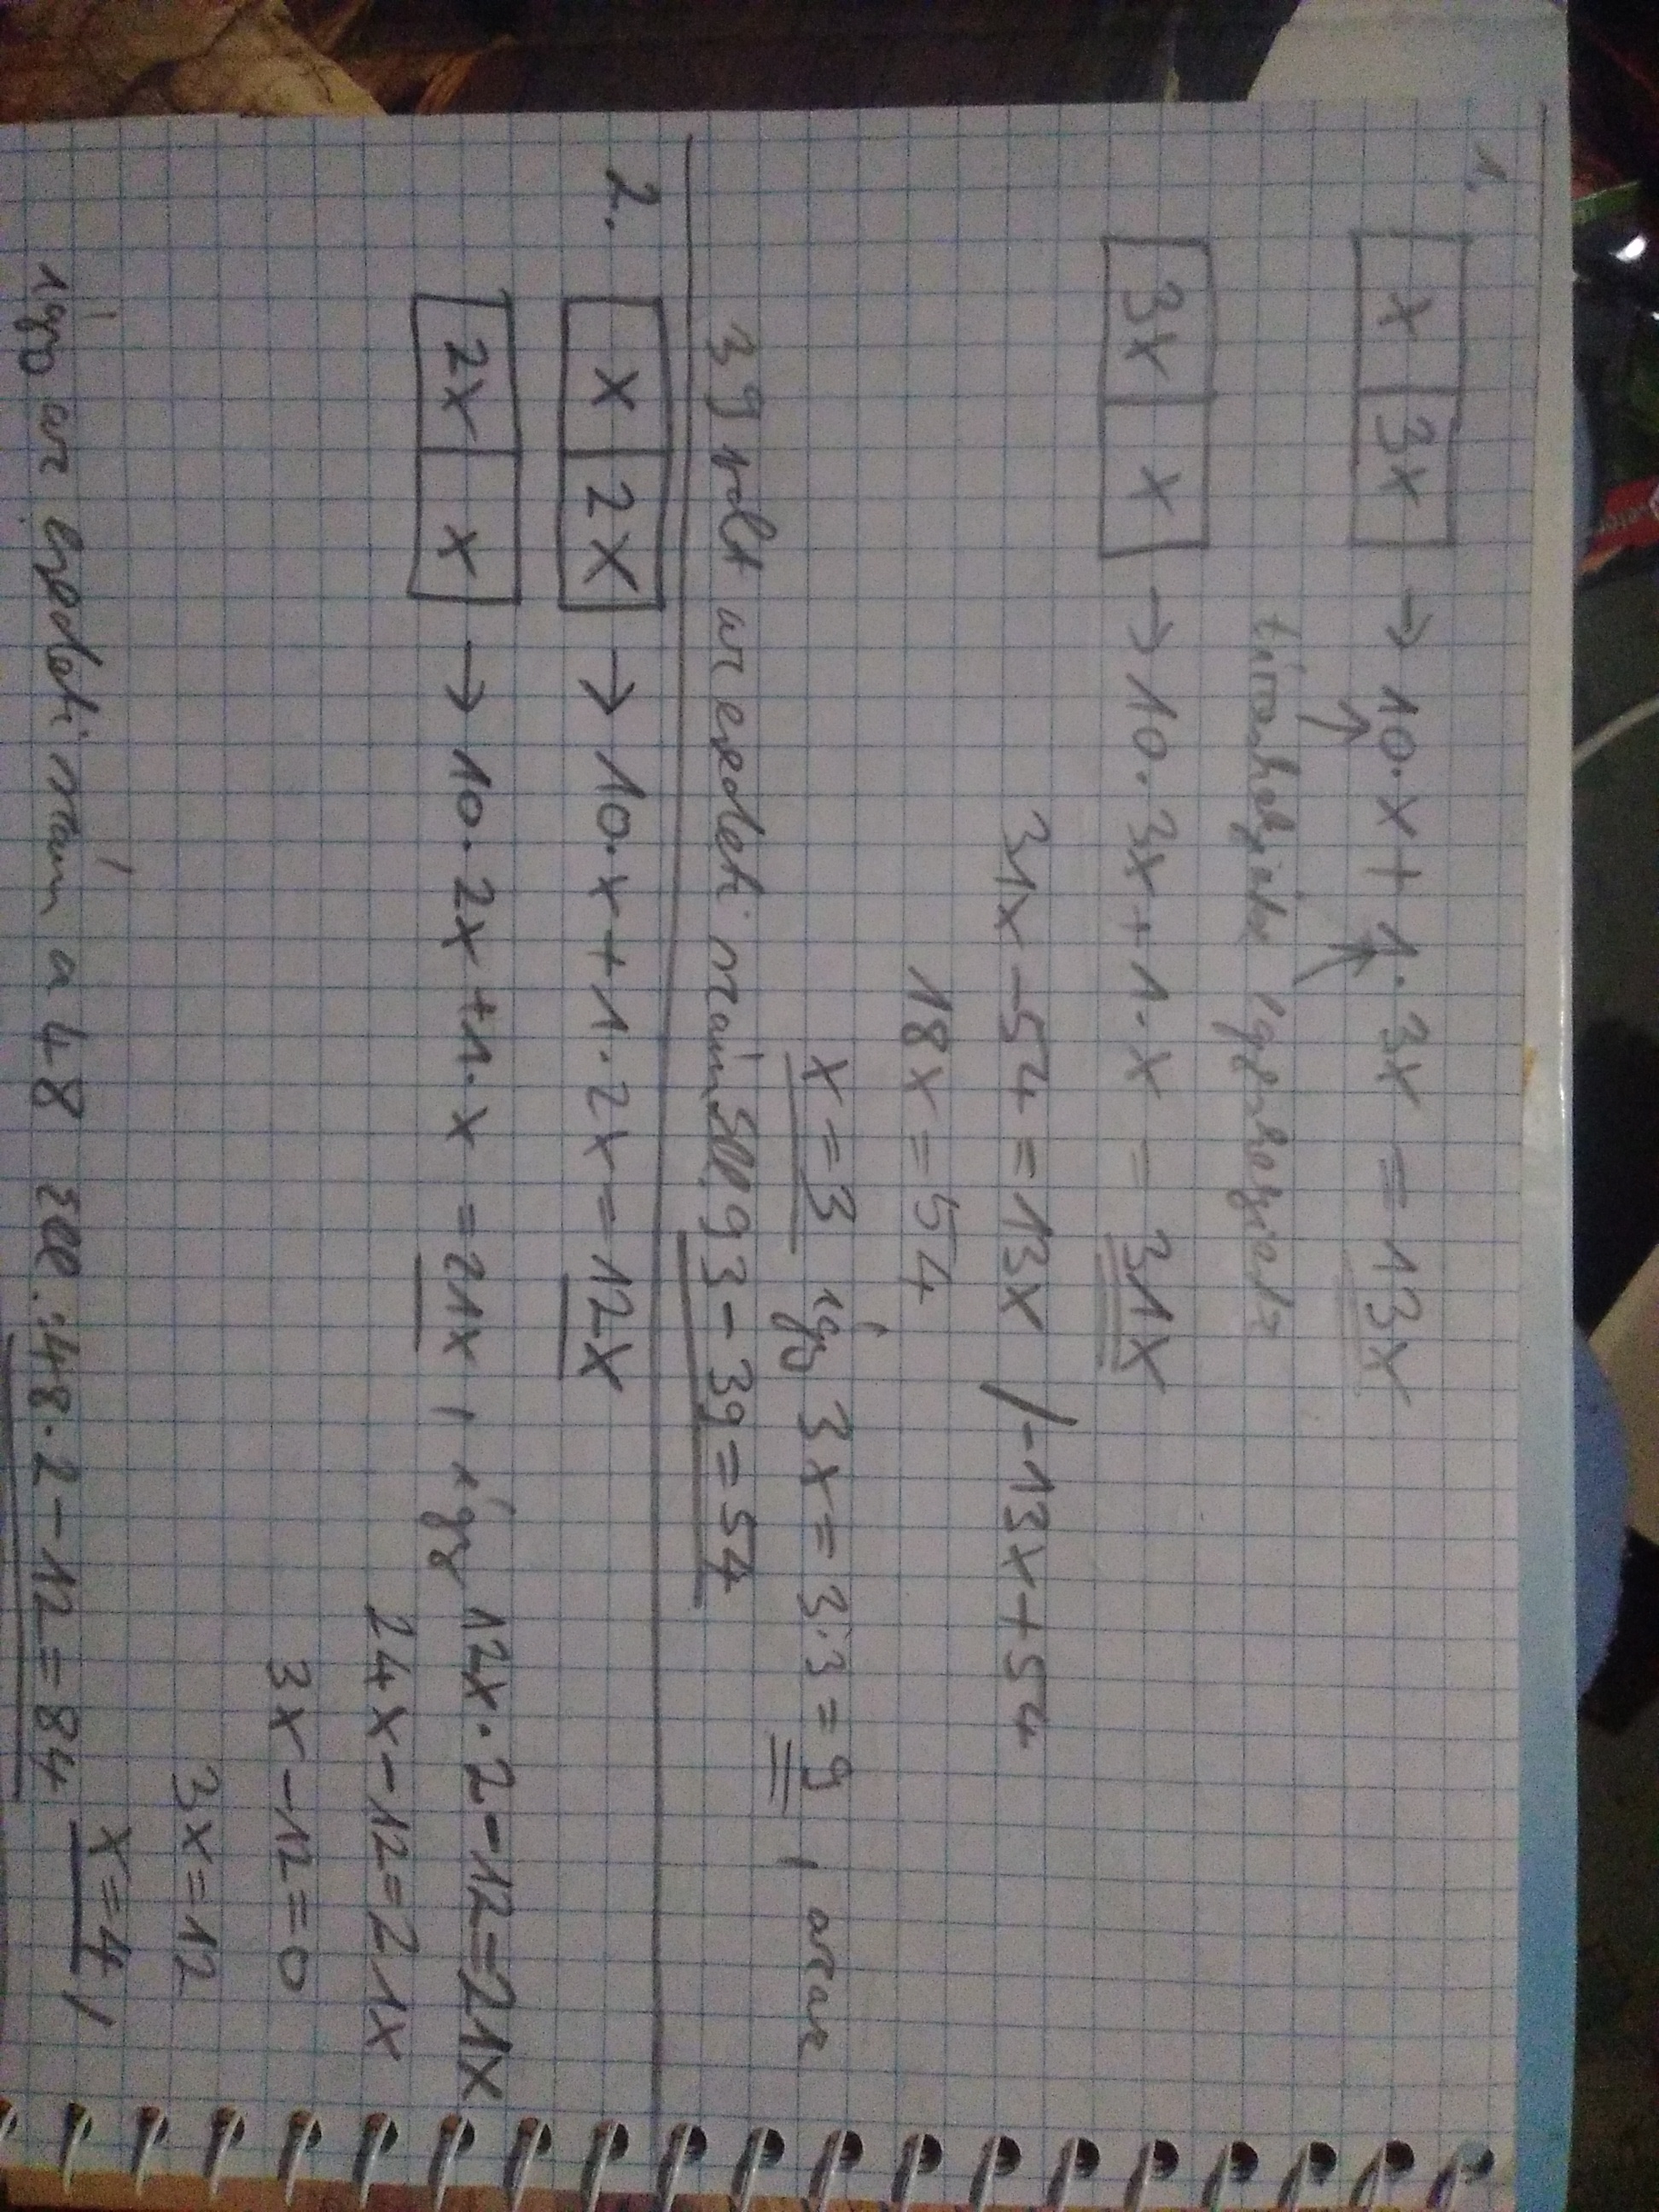 1.
x 3x → 10·x + 1·3x = 13x
tízes helyiérték 1 es helyiérték
3x x → 10·3x + 1·x = 31x
31x - 54 = 13x /-13x+54
18x = 54
x = 3 így 3x = 3·3 = 9, azaz
39 volt az eredeti szám Ell. 93 - 39 = 54
2.
x 2x → 10·x + 1·2x = 12x
2x x → 10·2x + 1·x = 21x, így 12x·2-12=21x
24x-12=21x
3x-12=0
3x=12
x=4,
így az eredeti szám a 48 Ell.: 48·2-12=84